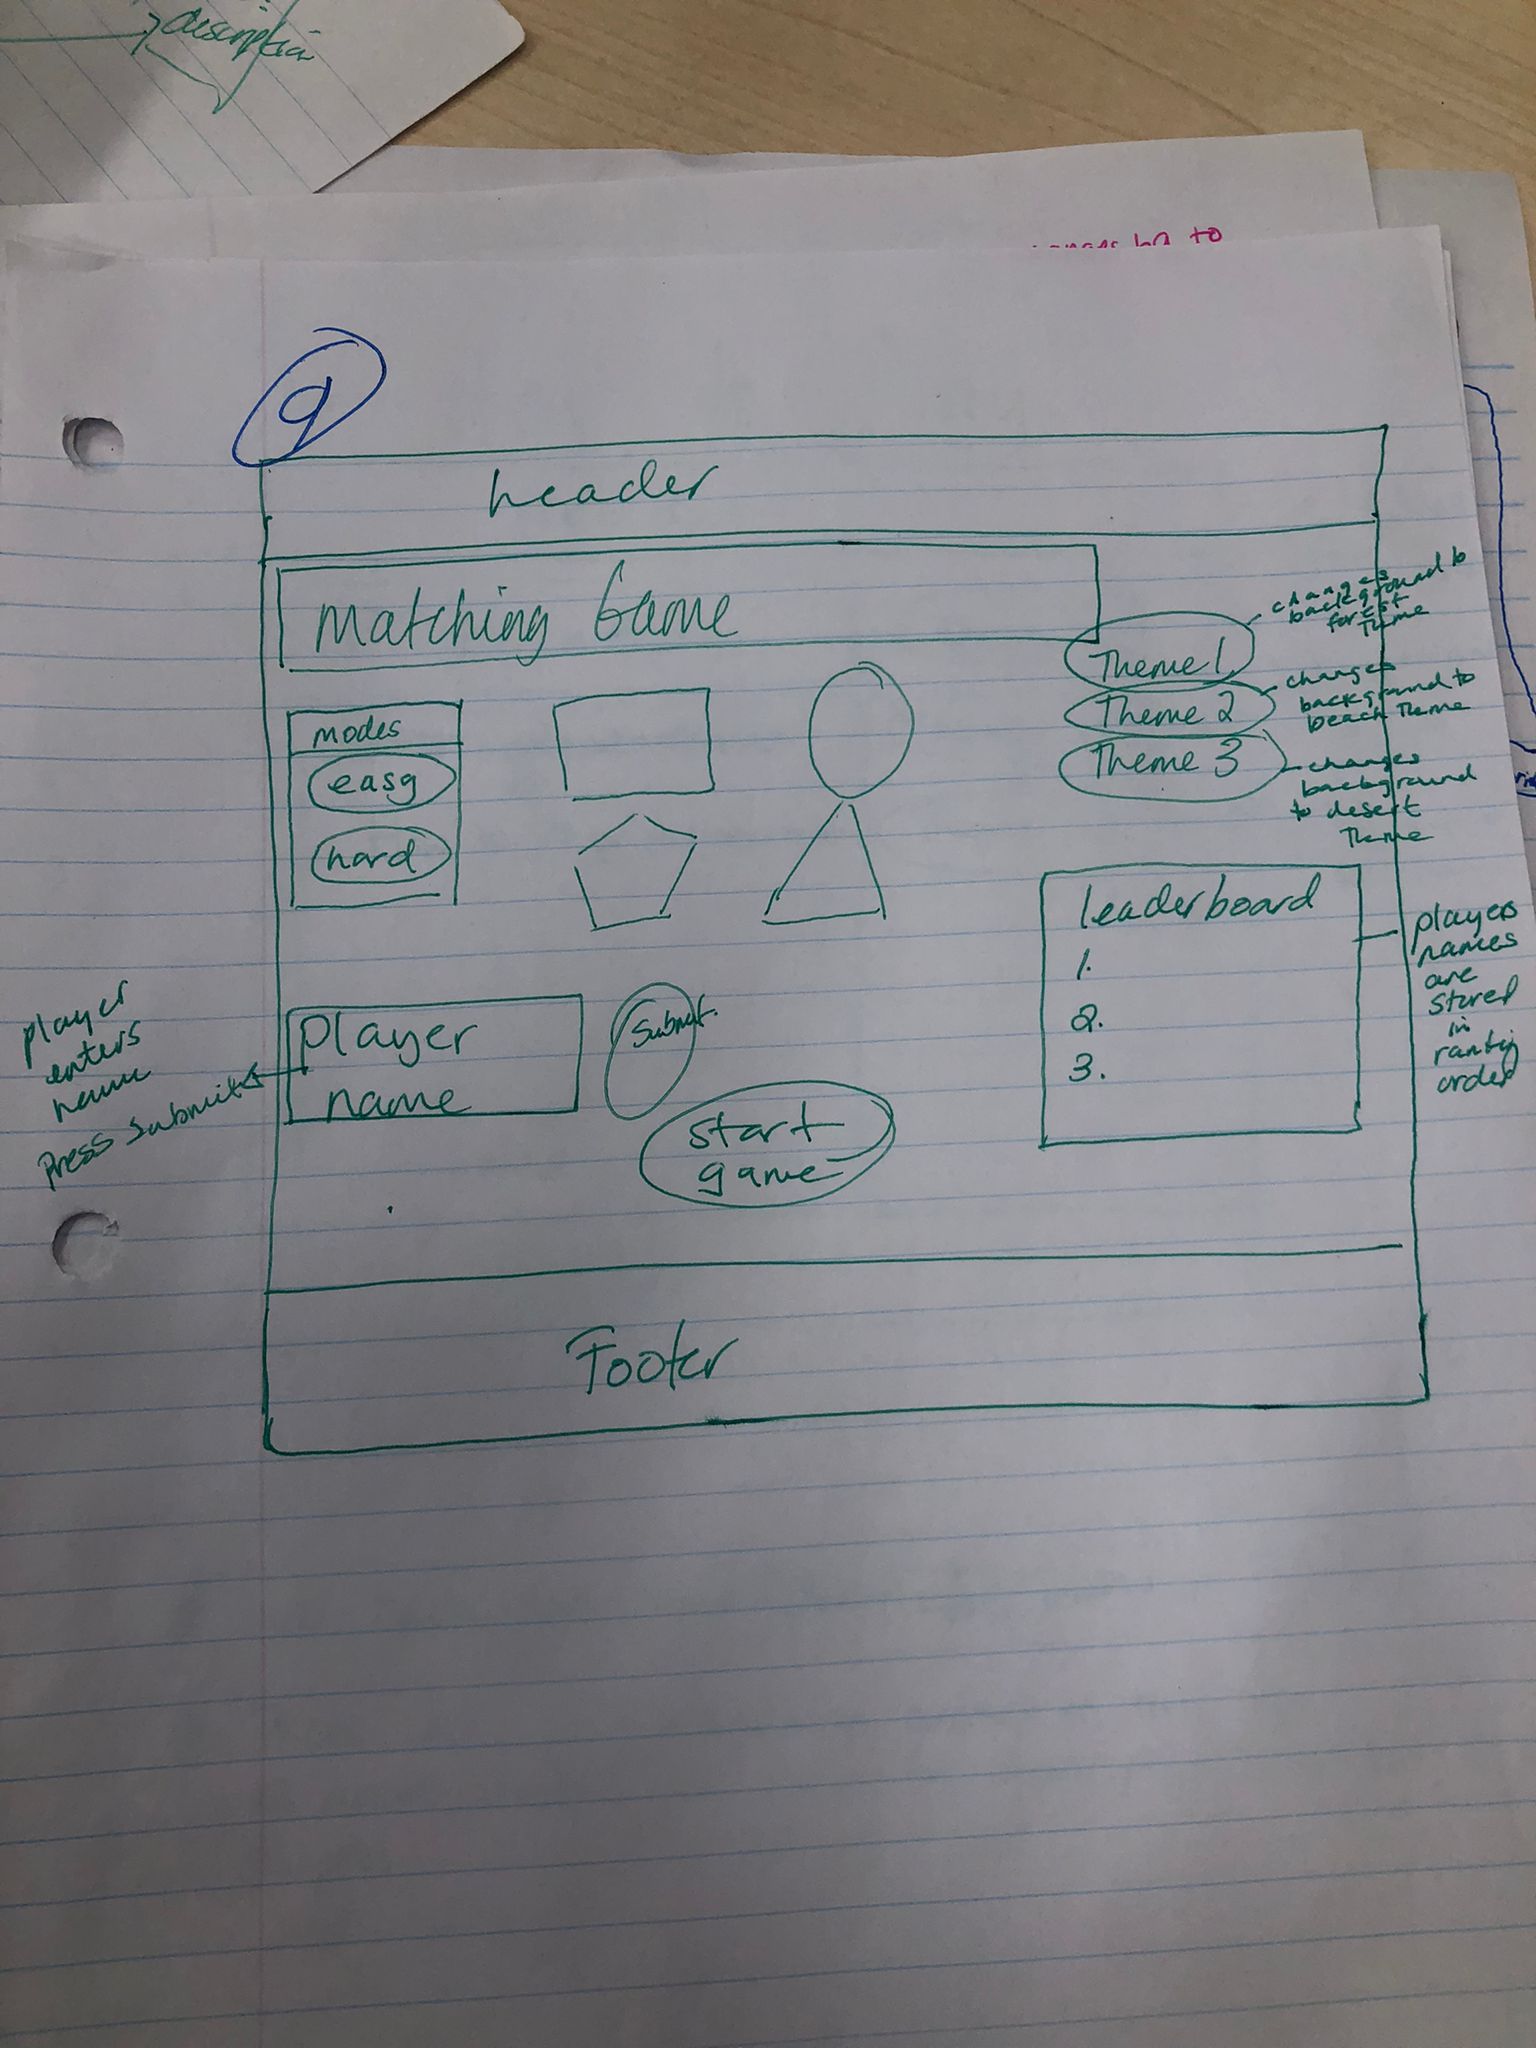 description
9
header
Matching Game
Theme 1
changes
background to
forest
Theme
Theme 2
changes
background to
beach Theme
Theme 3
changes
background
to desert
Theme
modes
easy
hard
leaderboard
1.
2.
3.
players
names
are
stored
in
order
player
enters
name
Press Submit
Player
name
Submit.
start
game
Footer